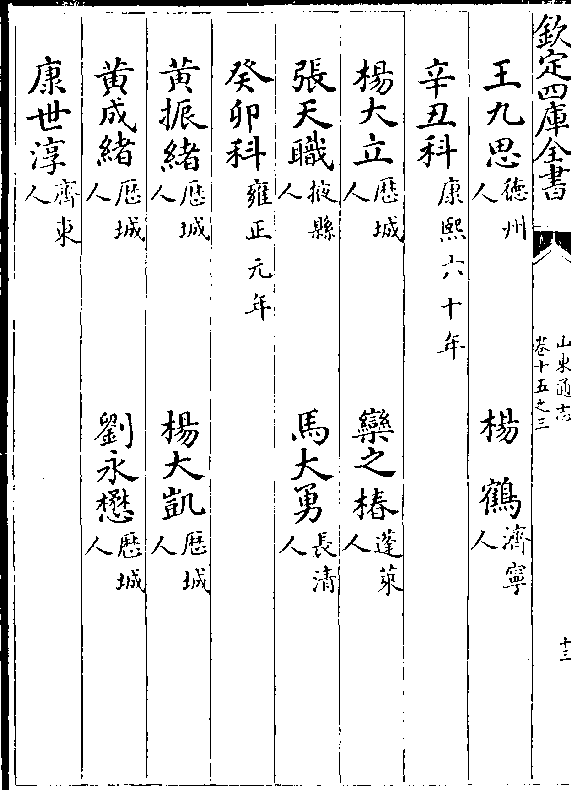 欽定四庫全書
山東通志
卷十五之三
十三
王九思德州人 楊鶴濟寧人
辛丑科康熙六十年
楊大立歷城人 欒之椿蓬萊人
張天職掖縣人 馬大勇長清人
癸卯科雍正元年
黄振緒歷城人 楊大凱歷城人
黄成緒歷城人 劉永懋歷城人
康世淳齊東人